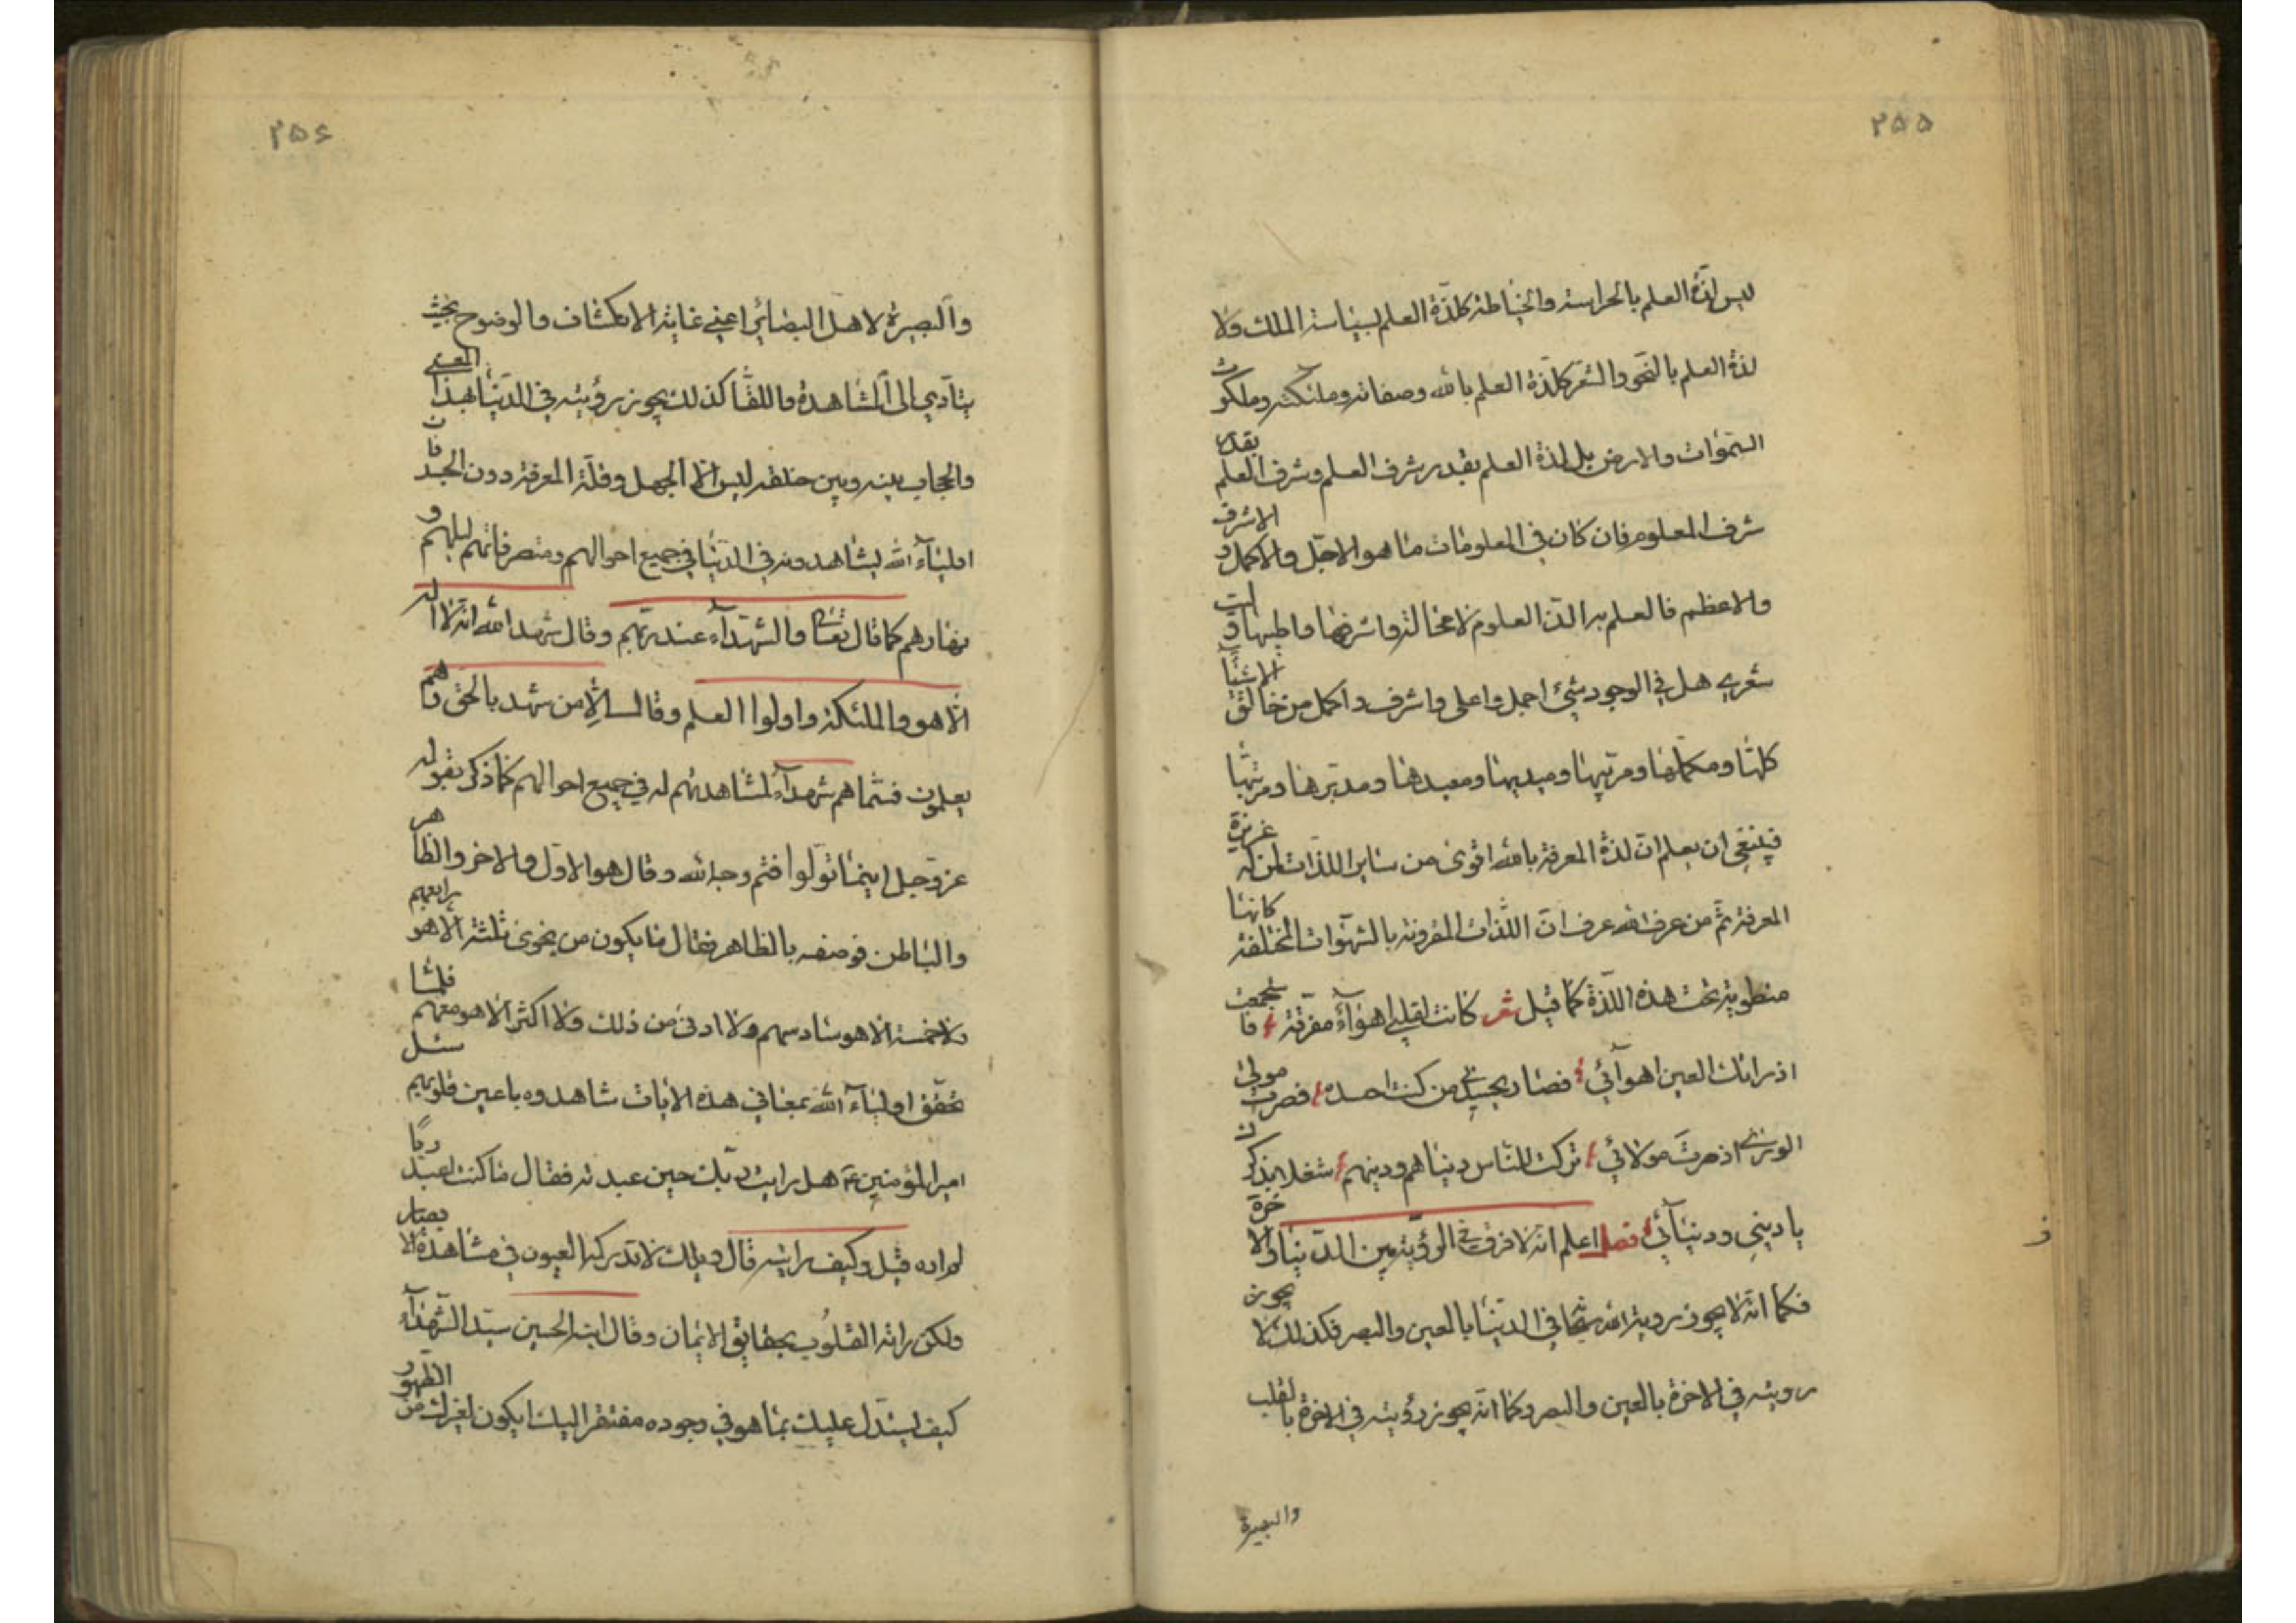 ٢٥٥
ليس لذة العلم بالحراسة والخياطة كلذة العلم بسياسة الملك ولا
لذة العلم بالنحو والشعر كلذة العلم بالله وصفاته وملئكته وملكوت
السموات والارض بل لذة العلم بقدر شرف العلم وشرف العلم بقدر
شرف المعلوم فان كان في المعلومات ما هو الاجل والاكمل والاشرف
والاعظم فالعلم به الذ العلوم لا محالة واشرفها واطيبها وليت
شعري هل في الوجود شيئ اجمل واعلى واشرف واكمل من خالق الاشيآء
كلها ومكملها ومزينها ومبديها ومعيدها ومدبرها ومرتبها
فينبغي ان يعلم ان لذة المعرفة بالله اقوى من ساير اللذات لمن له غريزة
المعرفة ثم من عرف الله عرف ان اللذات المقرونة بالشهوات المختلفة كانها
منطوية تحت هذه اللذة كما قيل شعر كانت لقلبي اهوآء مفرقة فاستجمعت
اذ راتك العين اهوآئي فصار يحسدني من كنت احسده فصرت مولى
الورى اذ صرت مولائي تركت للناس دنياهم ودينهم شغلا بذكرك
يا ديني ودنيآئي فصل اعلم انه لا فرق في الرؤية بين الدنيا والاخرة
فكما انه لا يجوز روية الله سبحانه في الدنيا بالعين والبصر فكذلك لا يجوز
رويته في الاخرة بالعين والبصر وكما انه يجوز رؤيته في الاخرة بالقلب
والبصيرة
٢٥۶
والبصيرة لاهل البصائر اعني غاية الانكشاف والوضوح بحيث
يتادي الى المشاهدة واللقآء كذلك يجوز رؤيته في الدنيا بهذا المعنى
والحجاب بينه وبين خلقه ليس الا الجهل وقلة المعرفة دون الجسد فان
اوليآء الله يشاهدونه في الدنيا في جميع احوالهم ومتصرفاتهم ليلهم و
نهارهم كما قال تعالى والشهدآء عند ربهم وقال شهد الله انه لا اله
الا هو والملئكة واولوا العلم وقال الا من شهد بالحق وهم
يعلمون فسماهم شهدآء لمشاهدتهم له في جميع احوالهم كما ذكر بقوله
عز وجل اينما تولوا فثم وجه الله وقال هو الاول والاخر والظاهر
والباطن فوصفه بالظاهر فقال ما يكون من نجوى ثلثة الا هو رابعهم
ولا خمسة الا هو سادسهم ولا ادنى من ذلك ولا اكثر الا هو معهم فلما
تحقق اوليآء الله بمعاني هذه الايات شاهدوه باعين قلوبهم سئل
امير المؤمنين ع هل رايت ربك حين عبدته فقال ما كنت اعبد ربا
لم اره قيل وكيف رايته قال ويلك لا تدركه العيون في مشاهدة الابصار
ولكن راته القلوب بحقايق الايمان وقال ابنه الحسين سيد الشهدآء
كيف يستدل عليك بما هو في وجوده مفتقر اليك ايكون لغيرك من الظهور